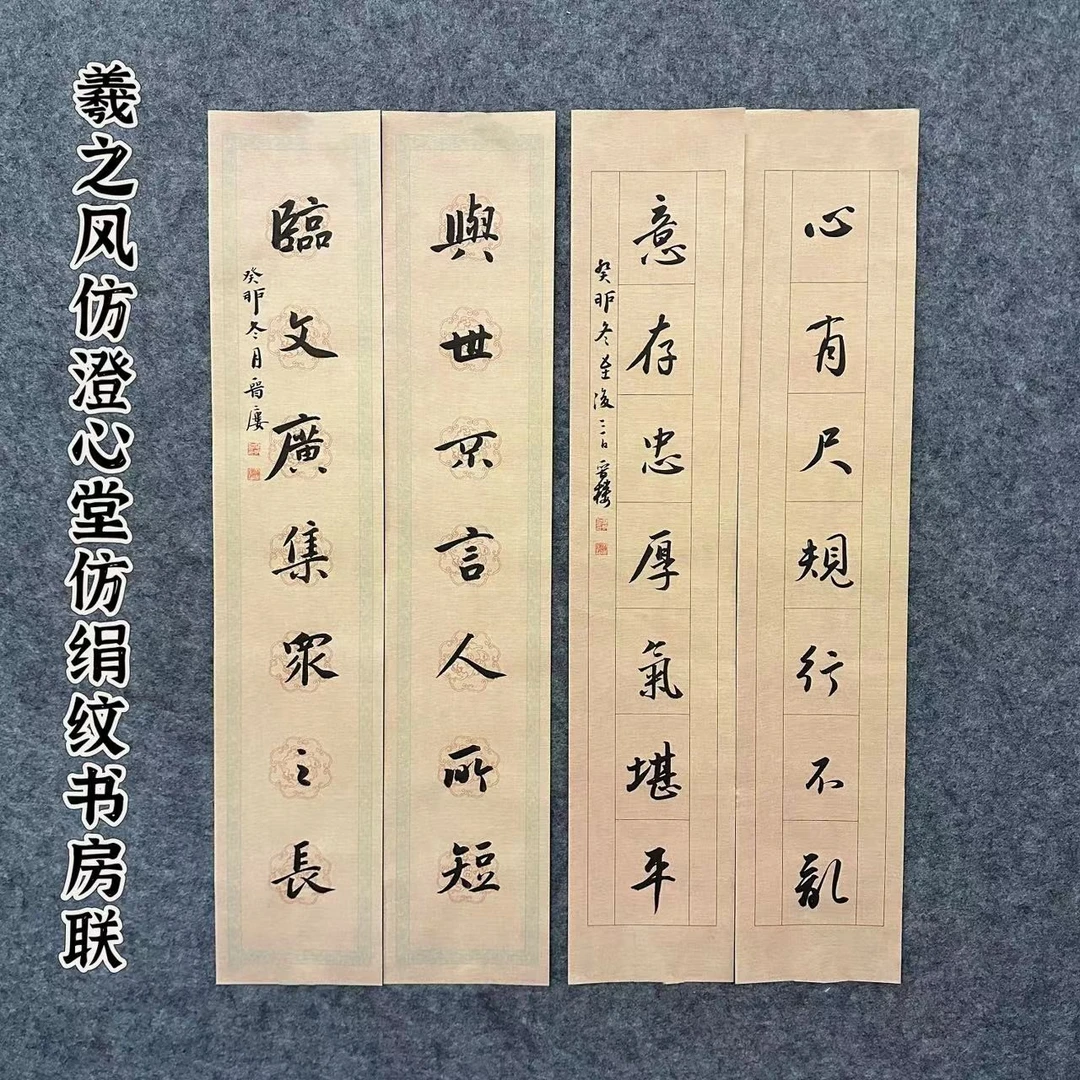 羲之风仿澄心堂仿绢纹书房联
心有尺規行不亂
意存忠厚氣堪平
癸卯冬至後三日晋樓
與世不言人所短
臨文廣集眾之長
癸卯冬月晋廔